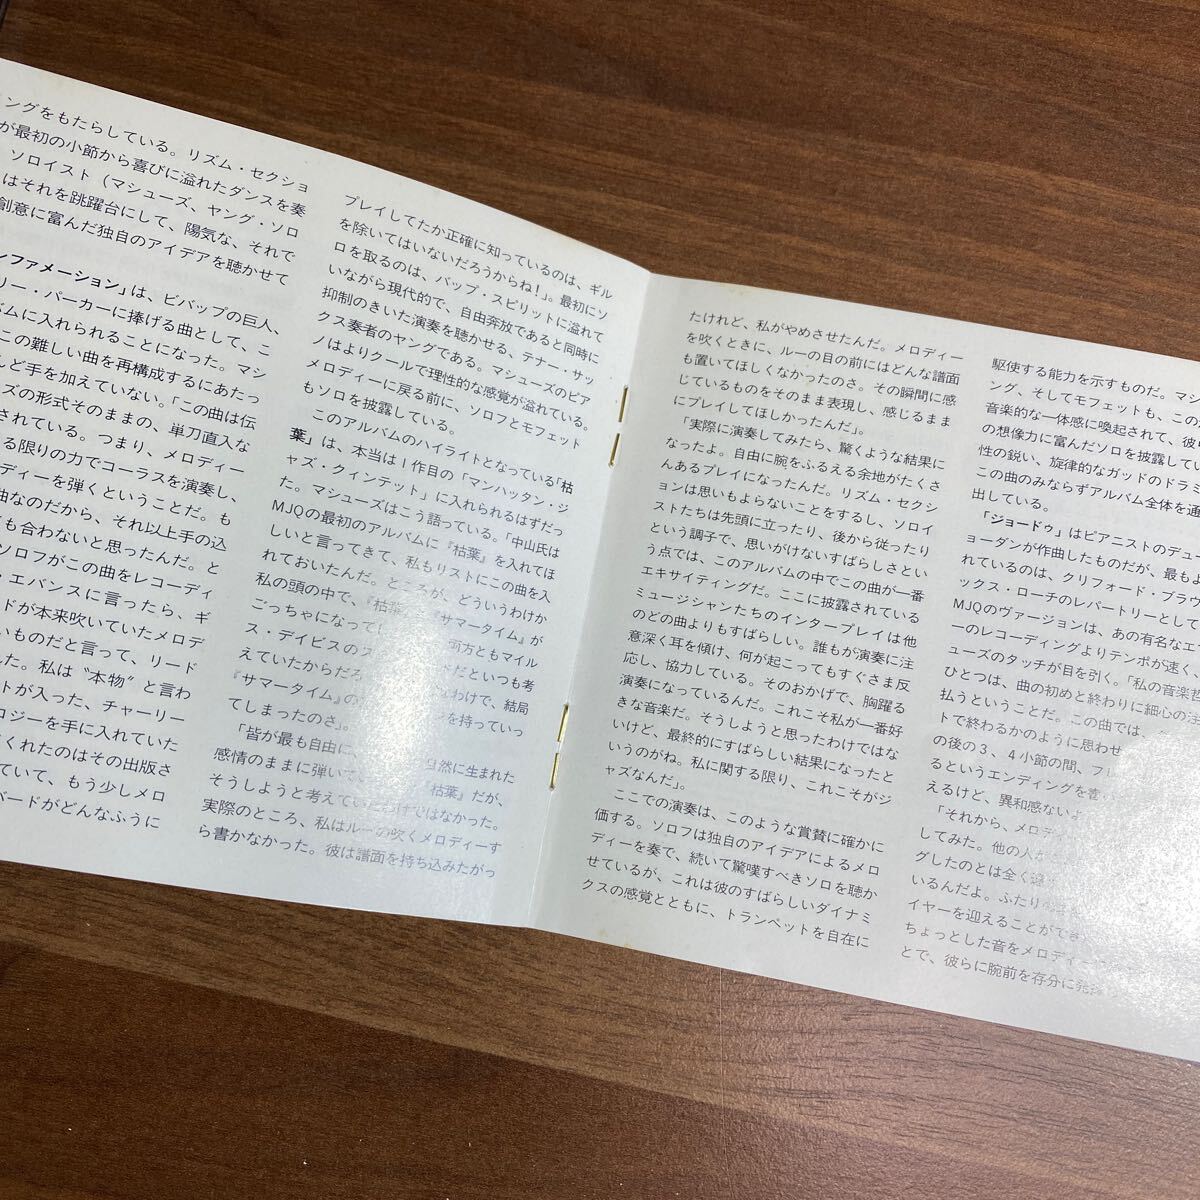 ングをもたらしている。リズム・セクショ
が最初の小節から喜びに溢れたダンスを奏
ソロイスト（マシューズ、ヤング・ソロ
はそれを跳躍台にして、陽気な、それで
創意に富んだ独自のアイデアを聴かせて
ンファメーション」は、ビバップの巨人、
リー・パーカーに捧げる曲として、こ
バムに入れられることになった。マシ
この難しい曲を再構成するにあたっ
んど手を加えていない。「この曲は伝
ズの形式そのままの、単刀直入な
されている。つまり、メロディー
る限りの力でコーラスを演奏し、
ディーを弾くということだ。も
曲なのだから、それ以上手の込
も合わないと思ったんだ。と
ソロフがこの曲をレコーディ
・エバンスに言ったら、ギ
ードが本来吹いていたメロデ
いものだと言って、リード
んた。私は〝本物〟と言わ
ートが入った、チャーリー
ロジーを手に入れていた
くれたのはその出版さ
ていて、もう少しメロ
バードがどんなふうに
プレイしてたか正確に知っているのは、ギル
を除いてはいないだろうからね！」。最初にソ
ロを取るのは、バップ・スピリットに溢れて
いながら現代的で、自由奔放であると同時に
抑制のきいた演奏を聴かせる、テナー・サッ
クス奏者のヤングである。マシューズのピア
ノはよりクールで理性的な感覚が溢れている。
メロディーに戻る前に、ソロフとモフェット
もソロを披露している。
このアルバムのハイライトとなっている「枯
葉」は、本当は１作目の「マンハッタン・ジ
ャズ・クィンテット」に入れられるはずだっ
た。マシューズはこう語っている。「中山氏は
MJQの最初のアルバムに『枯葉』を入れてほ
しいと言ってきて、私もリストにこの曲を入
れておいたんだ。ところが、どういうわけか
私の頭の中で、『枯葉』と『サマータイム』が
ごっちゃになって 両方ともマイル
ス・デイビスのス だといつも考
えていたからだろ なわけで、結局
『サマータイム』の ジを持っていっ
てしまったのさ」。
「皆が最も自由に、 自然に生まれた
感情のままに弾いてい 『枯葉』だが、
そうしようと考えていたわけではなかった。
実際のところ、私はルーの吹くメロディーす
ら書かなかった。彼は譜面を持ち込みたがっ
たけれど、私がやめさせたんだ。メロディー
を吹くときに、ルーの目の前にはどんな譜面
も置いてほしくなかったのさ。その瞬間に感
じているものをそのまま表現し、感じるまま
にプレイしてほしかったんだ」。
「実際に演奏してみたら、驚くような結果に
なったよ。自由に腕をふるえる余地がたくさ
んあるプレイになったんだ。リズム・セクシ
ョンは思いもよらないことをするし、ソロイ
ストたちは先頭に立ったり、後から従ったり
という調子で、思いがけないすばらしさとい
う点では、このアルバムの中でこの曲が一番
エキサイティングだ。ここに披露されている
ミュージシャンたちのインタープレイは他
のどの曲よりもすばらしい。誰もが演奏に注
意深く耳を傾け、何が起こってもすぐさま反
応し、協力している。そのおかげで、胸躍る
演奏になっているんだ。これこそ私が一番好
きな音楽だ。そうしようと思ったわけではな
いけど、最終的にすばらしい結果になったと
いうのがね。私に関する限り、これこそがジ
ャズなんだ」。
ここでの演奏は、このような賞賛に確かに
価する。ソロフは独自のアイデアによるメロ
ディーを奏で、続いて驚嘆すべきソロを聴か
せているが、これは彼のすばらしいダイナミ
クスの感覚とともに、トランペットを自在に
駆使する能力を示すものだ。マシ
ング、そしてモフェットも、この
音楽的な一体感に喚起されて、彼
の想像力に富んだソロを披露して
性の鋭い、旋律的なガッドのドラミ
この曲のみならずアルバム全体を通
出している。
「ジョードゥ」はピアニストのデュー
ョーダンが作曲したものだが、最もよ
れているのは、クリフォード・ブラウ
ックス・ローチのレパートリーとして
MJQのヴァージョンは、あの有名なエマ
ーのレコーディングよりテンポが速く、
ューズのタッチが目を引く。「私の音楽哲
ひとつは、曲の初めと終わりに細心の注
払うということだ。この曲では、
トで終わるかのように思わせ
の後の３、４小節の間、フレ
るというエンディングを書
えるけど、異和感ないよ
「それから、メロディ
してみた。他の人が
グしたのとは全く違
いるんだよ。ふたりの
イヤーを迎えることができ
ちょっとした音をメロディー
とで、彼らに腕前を存分に発揮